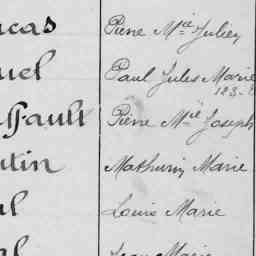 ucas Pierre Mie Julien
uel Paul Jules Marie
183-
ffault Pierre Mie Joseph
utin Mathurin Marie
al Louis Marie
al Jean Marie